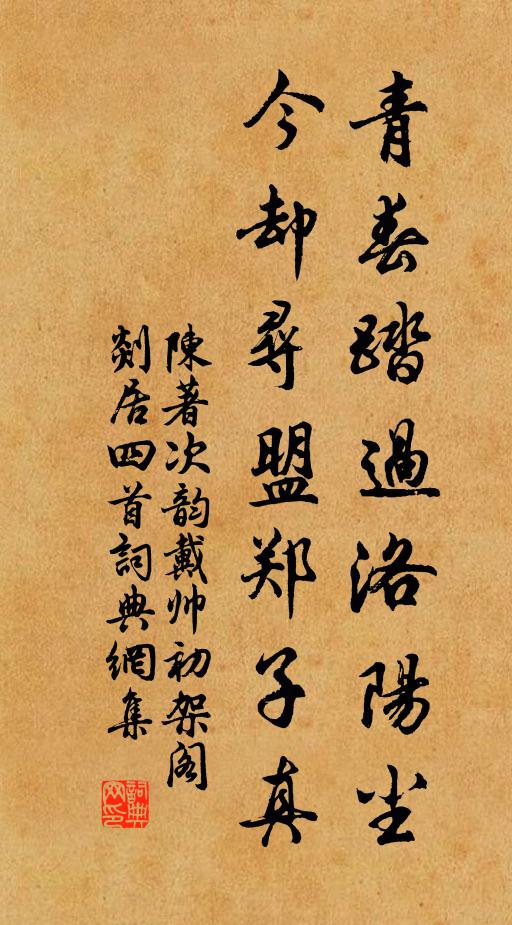 青春踏過洛陽尘
今却尋盟郑子真
陳著次韵戴帅初架阁
剡居四首詞典網集
詞典网印